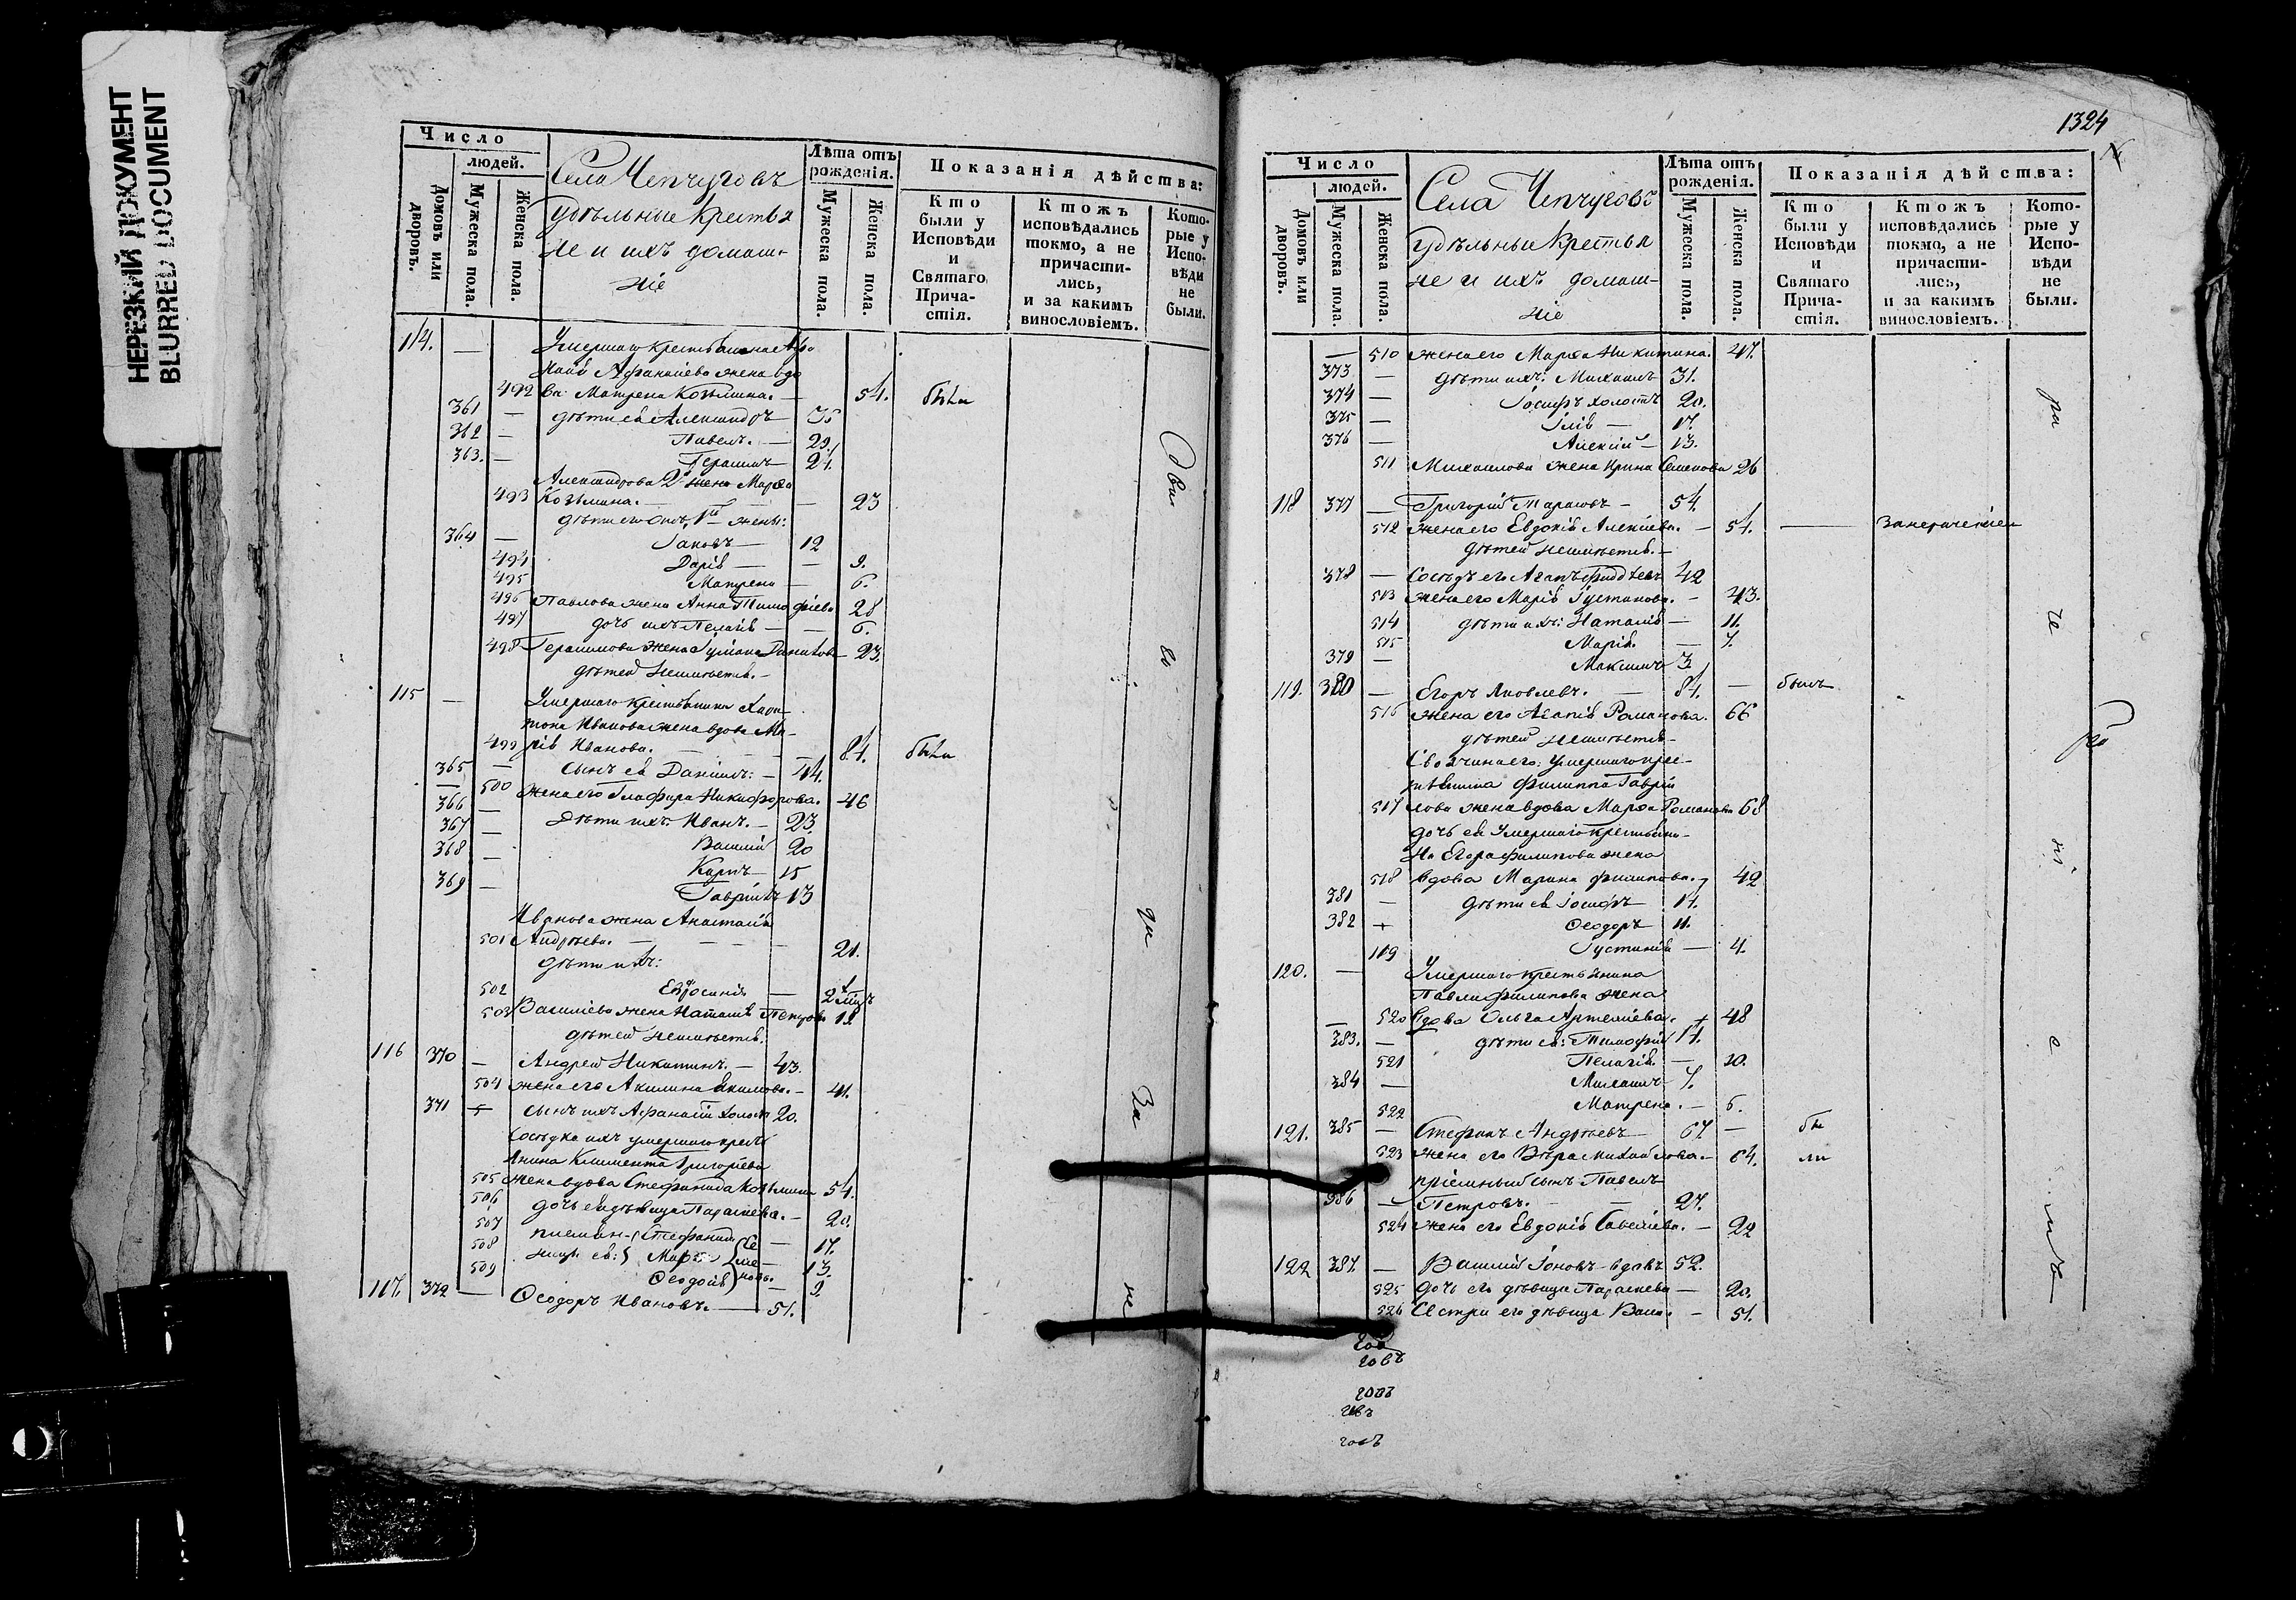 НЕРЕЗКИЙ ДОКУМЕНТ
BLURRED DOCUMENT
Число
людей.
Домовъ или дворовъ.
Мужеска пола.
Женска пола.
Села Чепчуговъ
удѣльные крестья
не и ихъ домаш-
ніе
Лѣта отъ рожденія.
Мужеска пола.
Женска пола.
Показанія дѣйства:
Кто были у Исповѣди и Святаго Прича-стія.
Ктожъ исповѣдались токмо, а не причасти-лись, и за какимъ винословіемъ.
Кото-рые у Испо-вѣди не были.
114. — Умершаго крестьянина
Афанасіева жена вдо
492 ва Матрена Козьмина. — 54. были
361 — дѣти ея Александръ 35
362 — Павелъ. — 29.
363. — Герасимъ — 21.
Александрова 2 жена Марѳа
493 Козьмина. — 23
дѣти его отъ 1й жены:
364 — Іаковъ — 12
494 Дарія — 9.
495 Матрена — 6.
496 Павлова жена Анна Тимофіева 28
497 дочь ихъ Пелагія — 6.
498 Герасимова жена Іуліана Данилова 23.
дѣтей неимѣетъ. —
115 — Умершаго крестьянина Хари-
тона Иванова жена вдова Ма-
499 рія Иванова. — 84. были
365 — сынъ ея Даніилъ: — 44.
500 жена его Глафира Никифорова. 46
366 — дѣти ихъ: Иванъ. — 23
367 — Василій 20
368 — Карпъ — 15
369 — Гавріилъ 13
Иванова жена Анастасія
501 Андрѣева. — 21.
дѣти ихъ:
502 Евфросинія —
503 Василіева жена Наталія Петрова 18
дѣтей неимѣетъ.
116 370 — Андрей Никитинъ. — 43.
504 жена его Акилина Акимова. — 41.
371 сынъ ихъ Афанасій холостъ 20.
Сосѣдка ихъ умершаго кресть
янина Климента Григоріева
505 жена вдова Стефанида Козьмина 54.
506 дочь ея дѣвица Параскева. — 20.
507 племян- Стефанида — 17.
508 ницы ея: — 13.
509 Ѳеодосія — 9
117. 372 — Ѳеодоръ Ивановъ. — 51.
1324
Число
людей.
Домовъ или дворовъ.
Мужеска пола.
Женска пола.
Села Чепчугово
удѣльные крестья
не и ихъ домаш-
ніе
Лѣта отъ рожденія.
Мужеска пола.
Женска пола.
Показанія дѣйства:
Кто были у Исповѣди и Святаго Прича-стія.
Ктожъ исповѣдались токмо, а не причасти-лись, и за какимъ винословіемъ.
Кото-рые у Испо-вѣди не были.
— 510 жена его Марѳа Никитина. 47.
373 — дѣти ихъ: Михаилъ 31.
374 — Іосифъ холостъ 20.
375 — Илія — 17.
376 — Алексій — 13.
511 Михаилова жена Ирина Семенова 26
118 377 — Григорій Тарасовъ — 54.
512 жена его Евдокія Алексіева. — 54. — занерачені
дѣтей неимѣетъ. —
378 — Сосѣдъ его Агапъ Фаддѣевъ 42
513 жена его Марія Іустинова. — 43.
514 дѣти ихъ: Наталія — 11.
515 Марія. — 7.
379 — Максимъ 3
119. 380 — Егоръ Яковлевъ. — 84. — былъ
516 жена его Агапія Романова. 66
дѣтей неимѣетъ —
Своячина его: умершаго крес-
тьянина Филиппа Гаврій
517 лова жена вдова Марѳа Романова 68
дочь ея умершаго крестьяни-
на Егора Филипова жена
518 вдова Марина Филипова. 42
381 — дѣти ея Іосифъ 17.
382 + Ѳеодоръ 11.
119 Іустинія — 4.
120. — Умершаго крестьянина
Павла Филипова жена
520 вдова Ольга Артеміева. + 48
383. — дѣти ея: Тимофей 17.
521 Пелагія. — 10.
384 — Михаилъ 7.
522 Матрена. — 5.
121. 385 — Стефанъ Андрѣевъ 67. — бы
523 жена его Вѣра Михайлова. — 64. ли
пріемный сынъ Павелъ
386 — Петровъ. — 27.
524 жена его Евдокія Савеліева. — 22
122 387. — Василій Іоновъ вдовъ 52.
525 дочь его дѣвица Параскева — 20.
526 Сестра его дѣвица Васи. — 51.